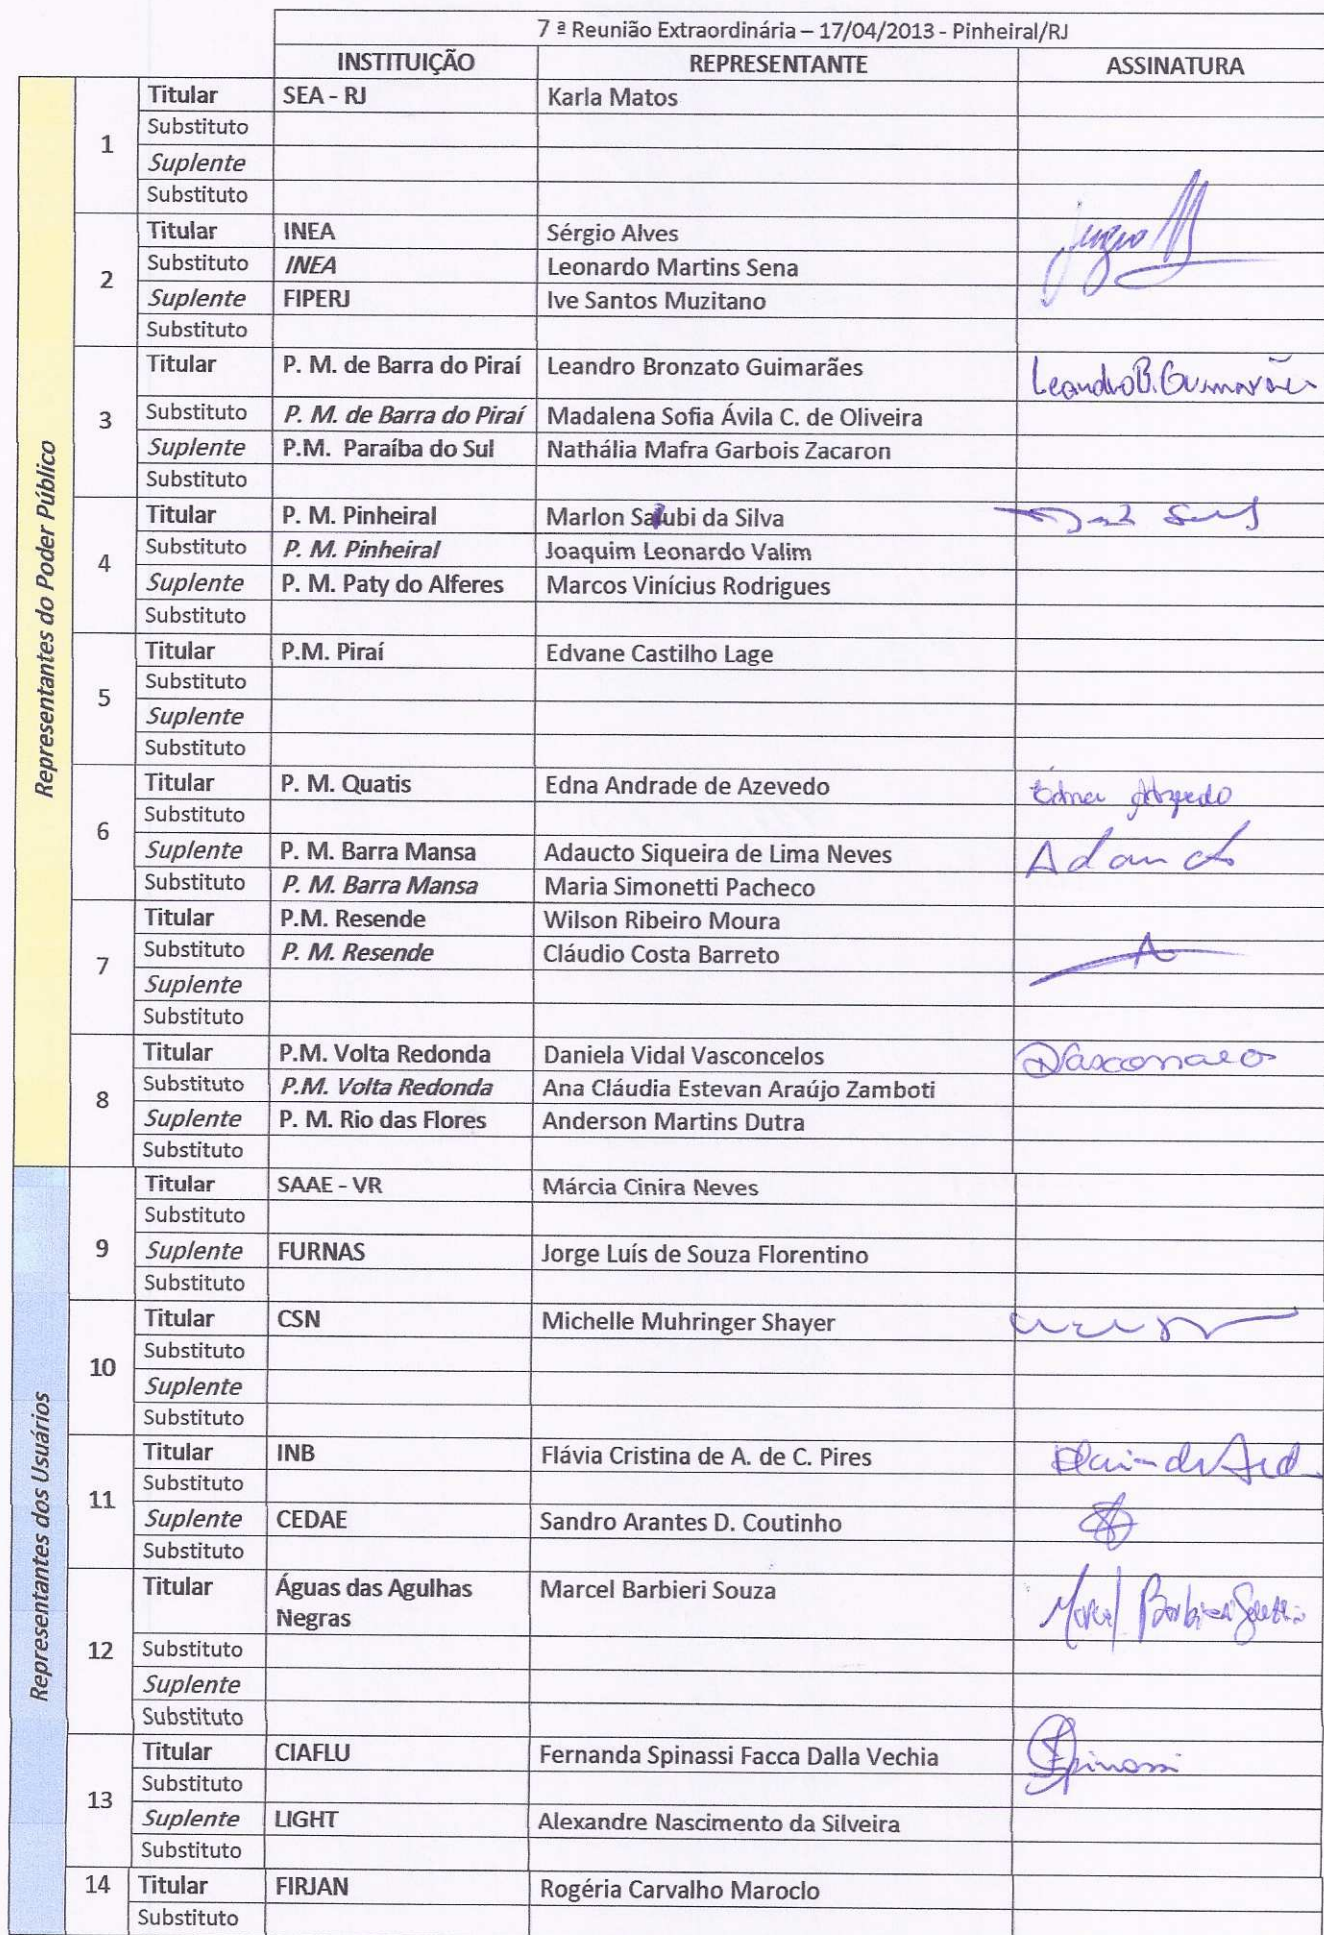 7 ª Reunião Extraordinária – 17/04/2013 - Pinheiral/RJ
INSTITUIÇÃO REPRESENTANTE ASSINATURA
Representantes do Poder Público
1
Titular SEA - RJ Karla Matos
Substituto
Suplente
Substituto
2
Titular INEA Sérgio Alves
Substituto INEA Leonardo Martins Sena
Suplente FIPERJ Ive Santos Muzitano
Substituto
3
Titular P. M. de Barra do Piraí Leandro Bronzato Guimarães Leandro B. Guimarães
Substituto P. M. de Barra do Piraí Madalena Sofia Ávila C. de Oliveira
Suplente P.M. Paraíba do Sul Nathália Mafra Garbois Zacaron
Substituto
4
Titular P. M. Pinheiral Marlon da Silva
Substituto P. M. Pinheiral Joaquim Leonardo Valim
Suplente P. M. Paty do Alferes Marcos Vinícius Rodrigues
Substituto
5
Titular P.M. Piraí Edvane Castilho Lage
Substituto
Suplente
Substituto
6
Titular P. M. Quatis Edna Andrade de Azevedo Edna Azevedo
Substituto
Suplente P. M. Barra Mansa Adaucto Siqueira de Lima Neves
Substituto P. M. Barra Mansa Maria Simonetti Pacheco
7
Titular P.M. Resende Wilson Ribeiro Moura
Substituto P. M. Resende Cláudio Costa Barreto
Suplente
Substituto
8
Titular P.M. Volta Redonda Daniela Vidal Vasconcelos
Substituto P.M. Volta Redonda Ana Cláudia Estevan Araújo Zamboti
Suplente P. M. Rio das Flores Anderson Martins Dutra
Substituto
Representantes dos Usuários
9
Titular SAAE - VR Márcia Cinira Neves
Substituto
Suplente FURNAS Jorge Luís de Souza Florentino
Substituto
10
Titular CSN Michelle Muhringer Shayer
Substituto
Suplente
Substituto
11
Titular INB Flávia Cristina de A. de C. Pires
Substituto
Suplente CEDAE Sandro Arantes D. Coutinho
Substituto
12
Titular Águas das Agulhas Marcel Barbieri Souza Marcel Barbieri Souza
Negras
Substituto
Suplente
Substituto
13
Titular CIAFLU Fernanda Spinassi Facca Dalla Vechia Spinassi
Substituto
Suplente LIGHT Alexandre Nascimento da Silveira
Substituto
14
Titular FIRJAN Rogéria Carvalho Maroclo
Substituto